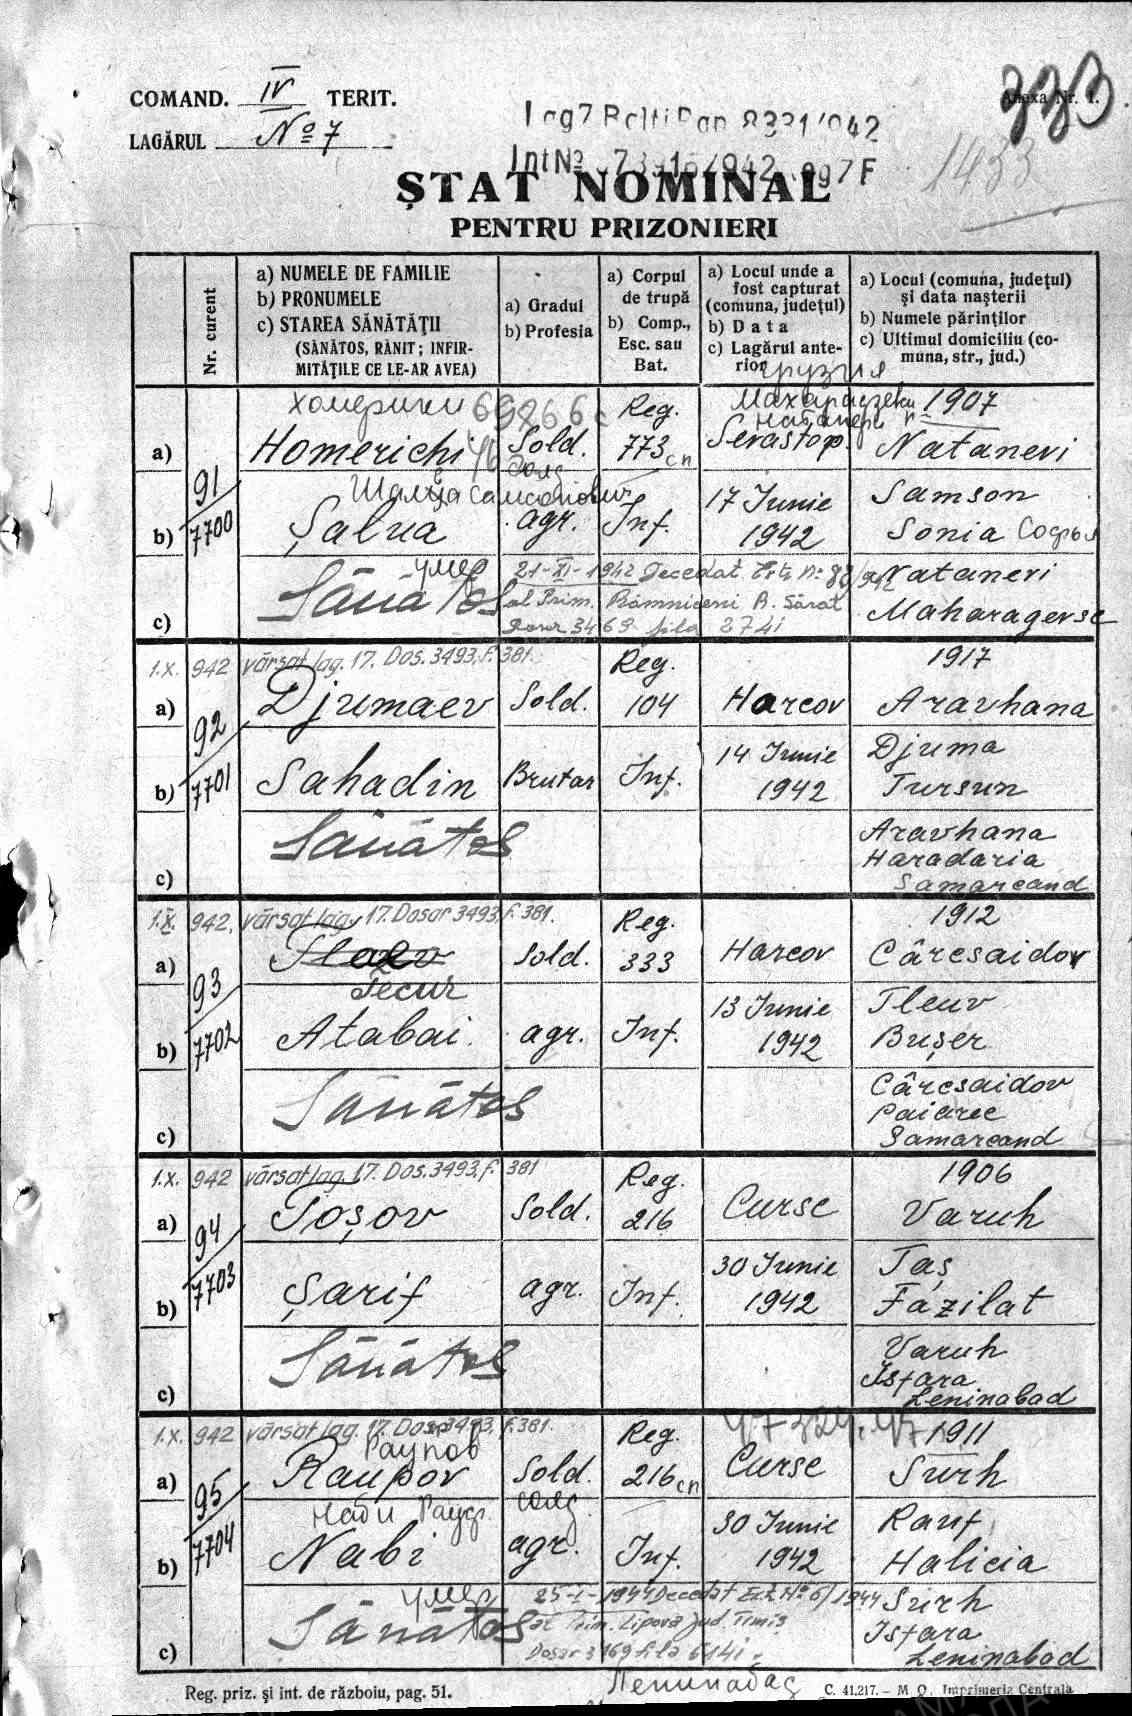 COMAND. IV TERIT.
LAGĂRUL No 7
Anexa Nr. 1.
333
1433
Lag7 Balti Dap 8331/942
Int No 942 Lag7F
ȘTAT NOMINAL
PENTRU PRIZONIERI
Nr. curent
a) NUMELE DE FAMILIE
b) PRONUMELE
c) STAREA SĂNĂTĂȚII
(SĂNĂTOS, RĂNIT; INFIR-
MITĂȚILE CE LE-AR AVEA)
a) Gradul
b) Profesia
a) Corpul
de trupă
b) Comp.,
Esc. sau
Bat.
a) Locul unde a
fost capturat
(comuna, județul)
b) Data
c) Lagărul ante-
rior
a) Locul (comuna, județul)
și data nașterii
b) Numele părinților
c) Ultimul domiciliu (co-
muna, str., jud.)
грузия
Хомерики 69266с Reg. Махарадзевски 1907
натанери
a) Homerichi Sold. 773 сп Sevastop. Natanevi
солд
91
7700
Шалва Самсонович
b) Șalua agr. Inf. 17 Iunie 1942 Samson
Sonia Софья
умер 21-XI-1942 Decedat Ext. No 82/942 Natanevi
c) Sănătos al Prim. Râmniceni R. Sărat Maharagevsc
Dosar 3469 fila 274i
1.X. 942 vărsat lag. 17. Dos. 3493, f. 381. Reg. 1917
a) Djumaev Sold. 104 Harcov Aravhana
92
7701
b) Sahadin Brutar Inf. 14 Iunie 1942 Djuma
Tursun
c) Sănătos Aravhana
Haradaria
Samarcand
1.X. 942. vărsat lag 17. Dosar 3493, f. 381. Reg. 1912
a) Sold. 333 Harcov Cârcsaidov
93
7702
Tecur
b) Atabai. agr. Inf. 13 Iunie 1942 Tleuv
Bușer
c) Sănătos Cârcsaidov
Paiarec
Samarcand
1.X. 942 vărsat lag. 17. Dos. 3493, f. 381 Reg. 1906
a) Toșov Sold. 216 Curse Varuh
94
7703
b) Șarif agr. Inf. 30 Iunie 1942 Taș
Fazilat
c) Sănătos Varuh
Isfara
Leninabad
1.X. 942 vărsat lag. 17. Dos. 3493, f. 381. Reg. 1911
Раупов
a) Raupov Sold. 216 сп Curse Surh
солд
95
7704
Наби Рауф.
b) Nabi agr. Inf. 30 Iunie 1942 Rauf
Halicia
умер 25-I-1944 Decedat Ext. No 6/1944 Surh
c) Sănătos al Prim. Lipova jud. Timiș Isfara
Dosar 3169 fila 614i. Leninabad
Ленинабад
Reg. priz. și int. de războiu, pag. 51.
C. 41,217. – M. O. Imprimeria Centrala